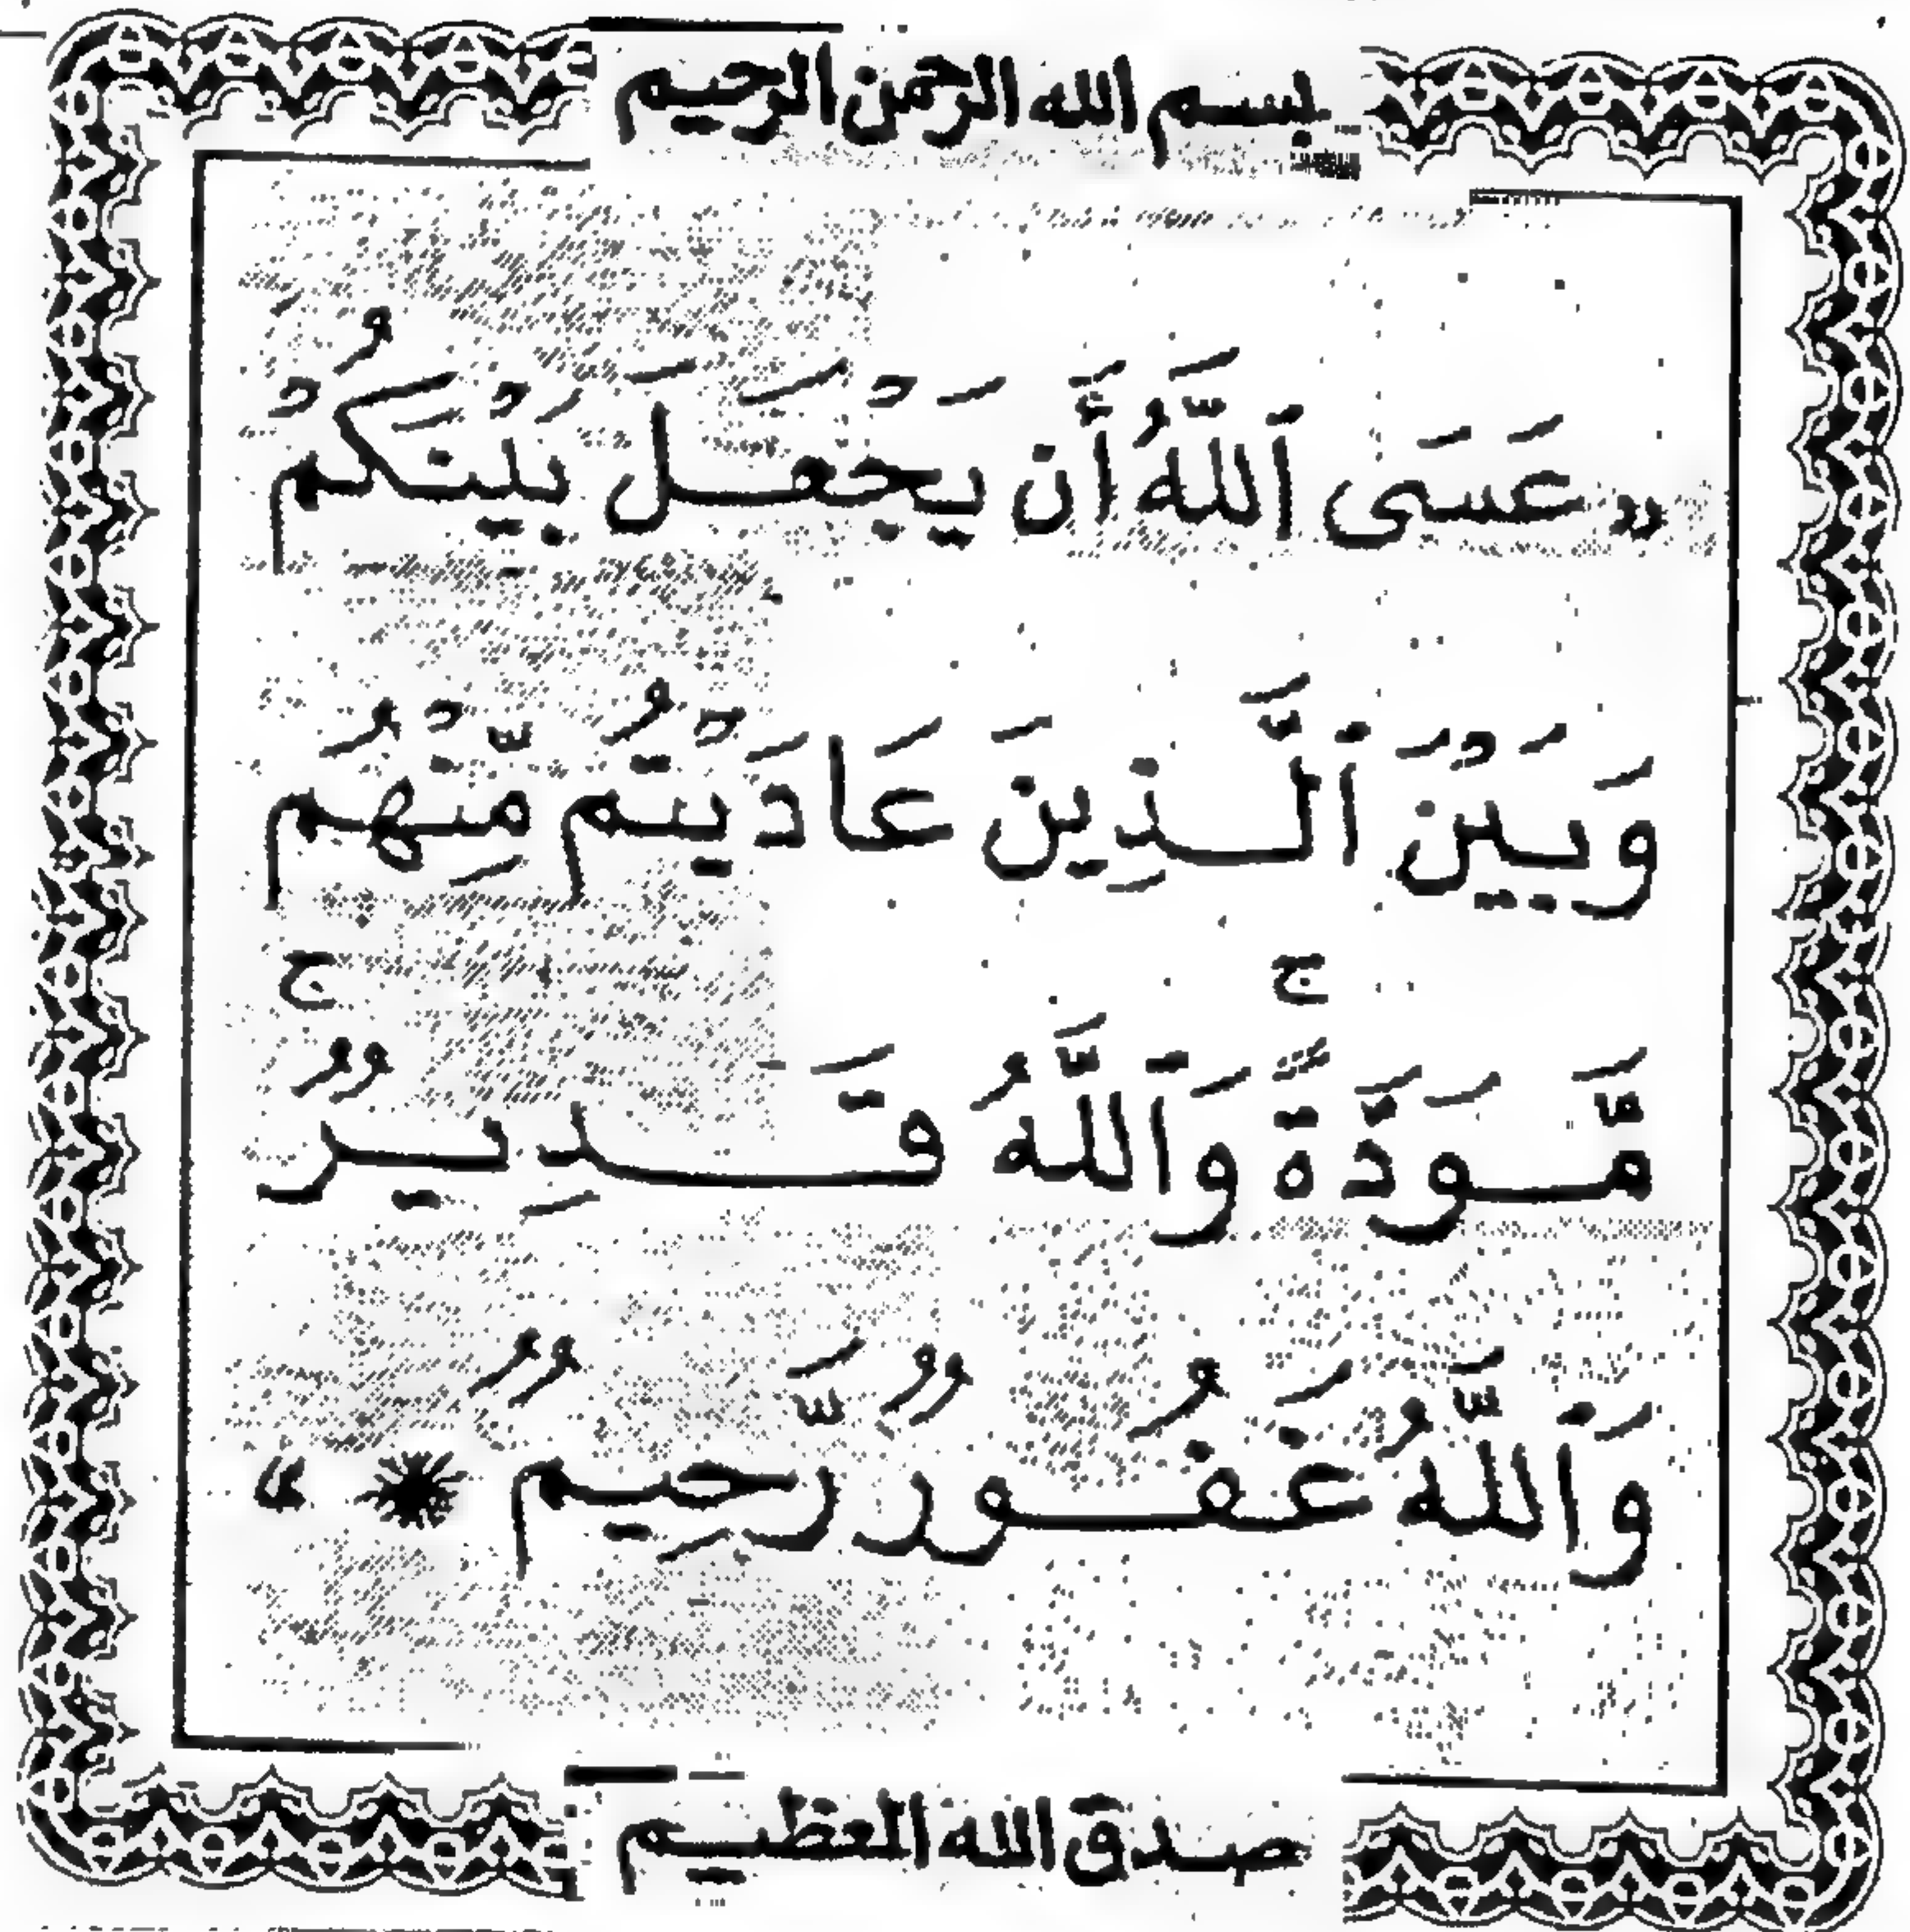 بسم الله الرحمن الرحيم
«عَسَى ٱللَّهُ أَن يَجْعَلَ بَيْنَكُمْ
وَبَيْنَ ٱلَّذِينَ عَادَيْتُم مِّنْهُم
مَّوَدَّةً ۚ وَٱللَّهُ قَدِيرٌ ۚ
وَٱللَّهُ غَفُورٌ رَّحِيمٌ * »
صدق الله العظيم